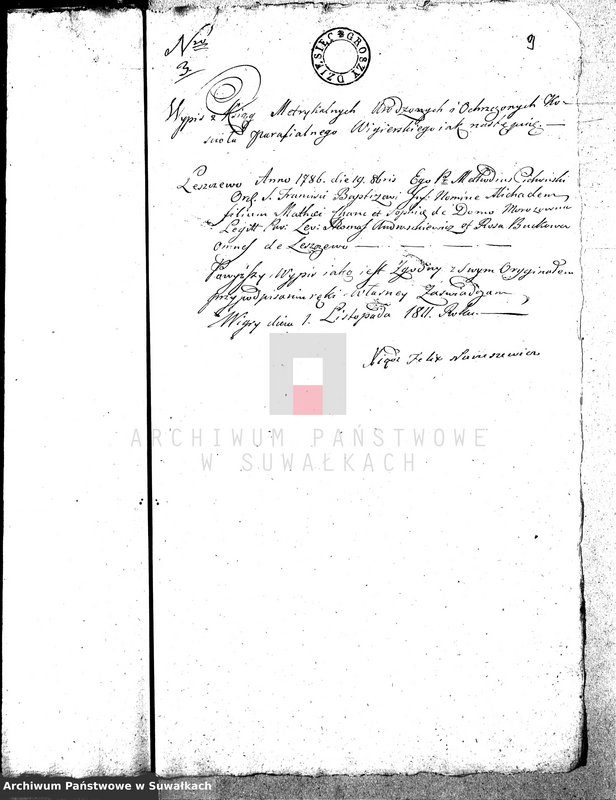 Nro
3.
DZIESIĘC GROSZY
9
Wypis z Xiąg Metrykalnych Urodzonych i Ochrzczonych Ko-
ścioła parafialnego Wigierskiego iak następuie
Leszczewo Anno 1786. die 19. 8bris Ego Pr. Methodius
Ord. S. Francisci Baptizavi Inf: Nomine Michaelem
filium Mathiei et Sophię de Domo Morozowna
Legitt. Par. Lev: Thomas Andruszkiewicz et Rosa Butkowa
omnes de Leszczewo
Powyższy Wypis iako iest Zgodny z swym Oryginałem
przy podpisaniu ręki własney Zaświadczam
Wigry dnia 1. Listopada 1811. Roku.
Felix
ARCHIWUM PAŃSTWOWE
W SUWAŁKACH
Archiwum Państwowe w Suwałkach